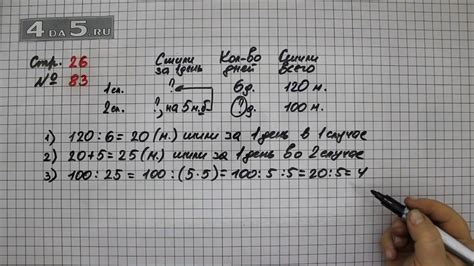 4DA5.RU
Стр. 26
№ 83
Сшили за 1 день
Кол-во дней
Сшили всего
1сл. ? 6д. 120 м.
2сл. ?, на 5 м.б. ? д. 100 м.
1) 120 : 6 = 20 (м.) шили за 1 день в 1 случае
2) 20+5 = 25 (м.) шили за 1 день во 2 случае
3) 100 : 25 = 100 : (5·5) = 100 : 5 : 5 = 20 : 5 = 4